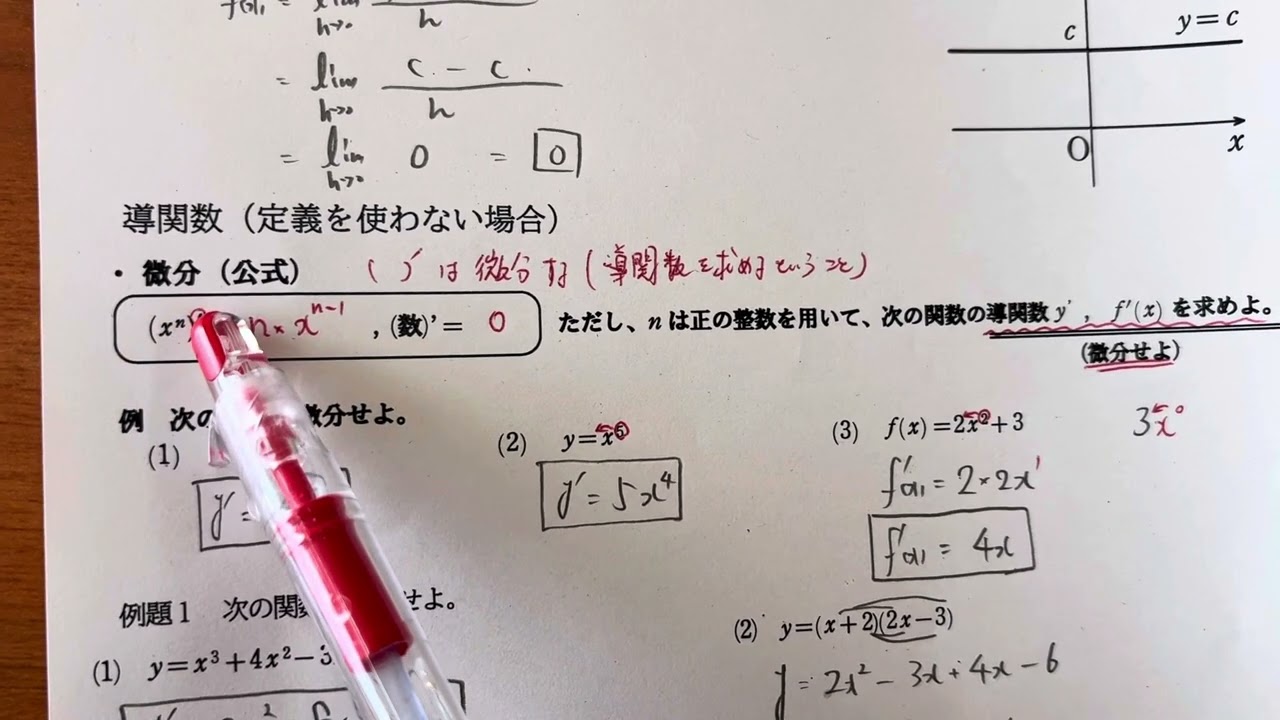 f'(x) = lim h→0 / h
c y=c
= lim h→0 c - c / h
= lim h→0 0 = 0
O x
導関数（定義を使わない場合）
・微分（公式） ( )' は微分する（導関数を求めるということ）
(xⁿ) n × xⁿ⁻¹ , (数)' = 0 ただし、nは正の整数を用いて、次の関数の導関数 y' , f'(x) を求めよ。
(微分せよ)
例 次の 微分せよ。
(1) (2) y=x⁵ (3) f(x)=2x²+3 3x⁰
y' = y' = 5x⁴ f'(x) = 2×2x¹
f'(x) = 4x
例題1 次の関数 せよ。
(1) y=x³+4x²-3 (2) y=(x+2)(2x-3)
y = 2x² - 3x + 4x - 6